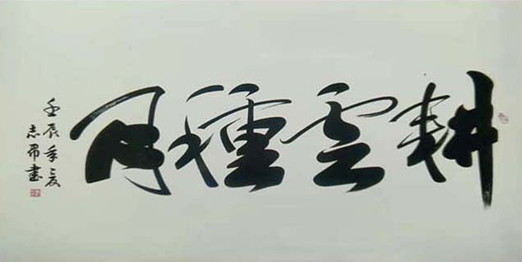 耕雲種月
壬辰年夏
志昂書